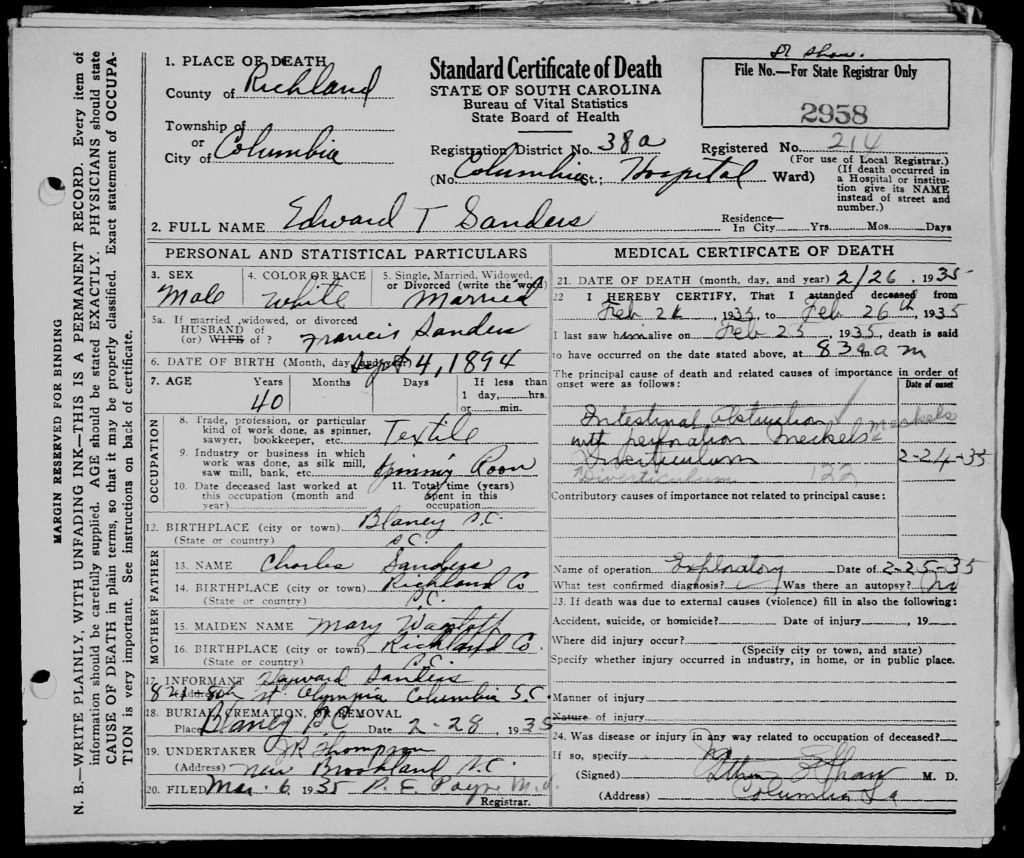 Dr Shaw.
1. PLACE OF DEATH
County of Richland
Township of
or
City of Columbia
Standard Certificate of Death
STATE OF SOUTH CAROLINA
Bureau of Vital Statistics
State Board of Health
File No.—For State Registrar Only
2958
Registration District No. 38a
Registered No. 214
(For use of Local Registrar.)
(No. Columbia St.; Hospital Ward)
(If death occurred in a Hospital or institution give its NAME instead of street and number.)
2. FULL NAME Edward T Sanders
Residence—
In City Yrs. Mos. Days
PERSONAL AND STATISTICAL PARTICULARS
3. SEX
Male
4. COLOR OR RACE
White
5. Single, Married, Widowed, or Divorced (write the word)
Married
5a. If married, widowed, or divorced
HUSBAND of
(or) WIFE of ? Francis Sanders
6. DATE OF BIRTH (Month, day, and year) Sept 4, 1894
7. AGE Years Months Days If less than
40
1 day, hrs.
or min.
OCCUPATION
8. Trade, profession, or particular kind of work done, as spinner, sawyer, bookkeeper, etc. Textile
9. Industry or business in which work was done, as silk mill, saw mill, bank, etc. Room
10. Date deceased last worked at this occupation (month and year)
11. Total time (years) spent in this occupation
12. BIRTHPLACE (city or town) Blaney S.C.
(State or country) S.C.
FATHER
13. NAME Charles Sanders
14. BIRTHPLACE (city or town) Richland Co
(State or country) S.C.
MOTHER
15. MAIDEN NAME Mary
16. BIRTHPLACE (city or town) Richland Co.
(State or country) S.C.
17. INFORMANT Hayward Sanders
(Address) 821-8th St. Olympia Columbia S.C.
18. BURIAL, CREMATION, OR REMOVAL
Place Blaney S.C. Date 2-28, 1935
19. UNDERTAKER JR Thompson
(Address) New Brookland S.C.
20. FILED Mar. 6 1935 P. E. Payne M.D.
Registrar.
MEDICAL CERTIFCATE OF DEATH
21. DATE OF DEATH (month, day, and year) 2/26, 1935
22 I HEREBY CERTIFY, That I attended deceased from
Feb 24, 1935, to Feb 26th, 1935
I last saw him alive on Feb 25, 1935, death is said
to have occurred on the date stated above, at 8 30 a m
The principal cause of death and related causes of importance in order of
onset were as follows:
Date of onset
Intestinal obstruction
with perforation Meckels Meckels
Diverticulum 2-24-35
Diverticulum 122
Contributory causes of importance not related to principal cause:
Name of operation Exploratory Date of 2-25-35
What test confirmed diagnosis? Was there an autopsy? No
23. If death was due to external causes (violence) fill in also the following:
Accident, suicide, or homicide? Date of injury, 19
Where did injury occur?
(Specify city or town, and state)
Specify whether injury occurred in industry, in home, or in public place.
Manner of injury
Nature of injury
24. Was disease or injury in any way related to occupation of deceased?
If so, specify No
(Signed) Shaw M. D.
(Address) Columbia
MARGIN RESERVED FOR BINDING
N. B.—WRITE PLAINLY, WITH UNFADING INK—THIS IS A PERMANENT RECORD. Every item of
information should be carefully supplied. AGE should be stated EXACTLY. PHYSICIANS should state
CAUSE OF DEATH in plain terms, so that it may be properly classified. Exact statement of OCCUPA-
TION is very important. See instructions on back of certificate.